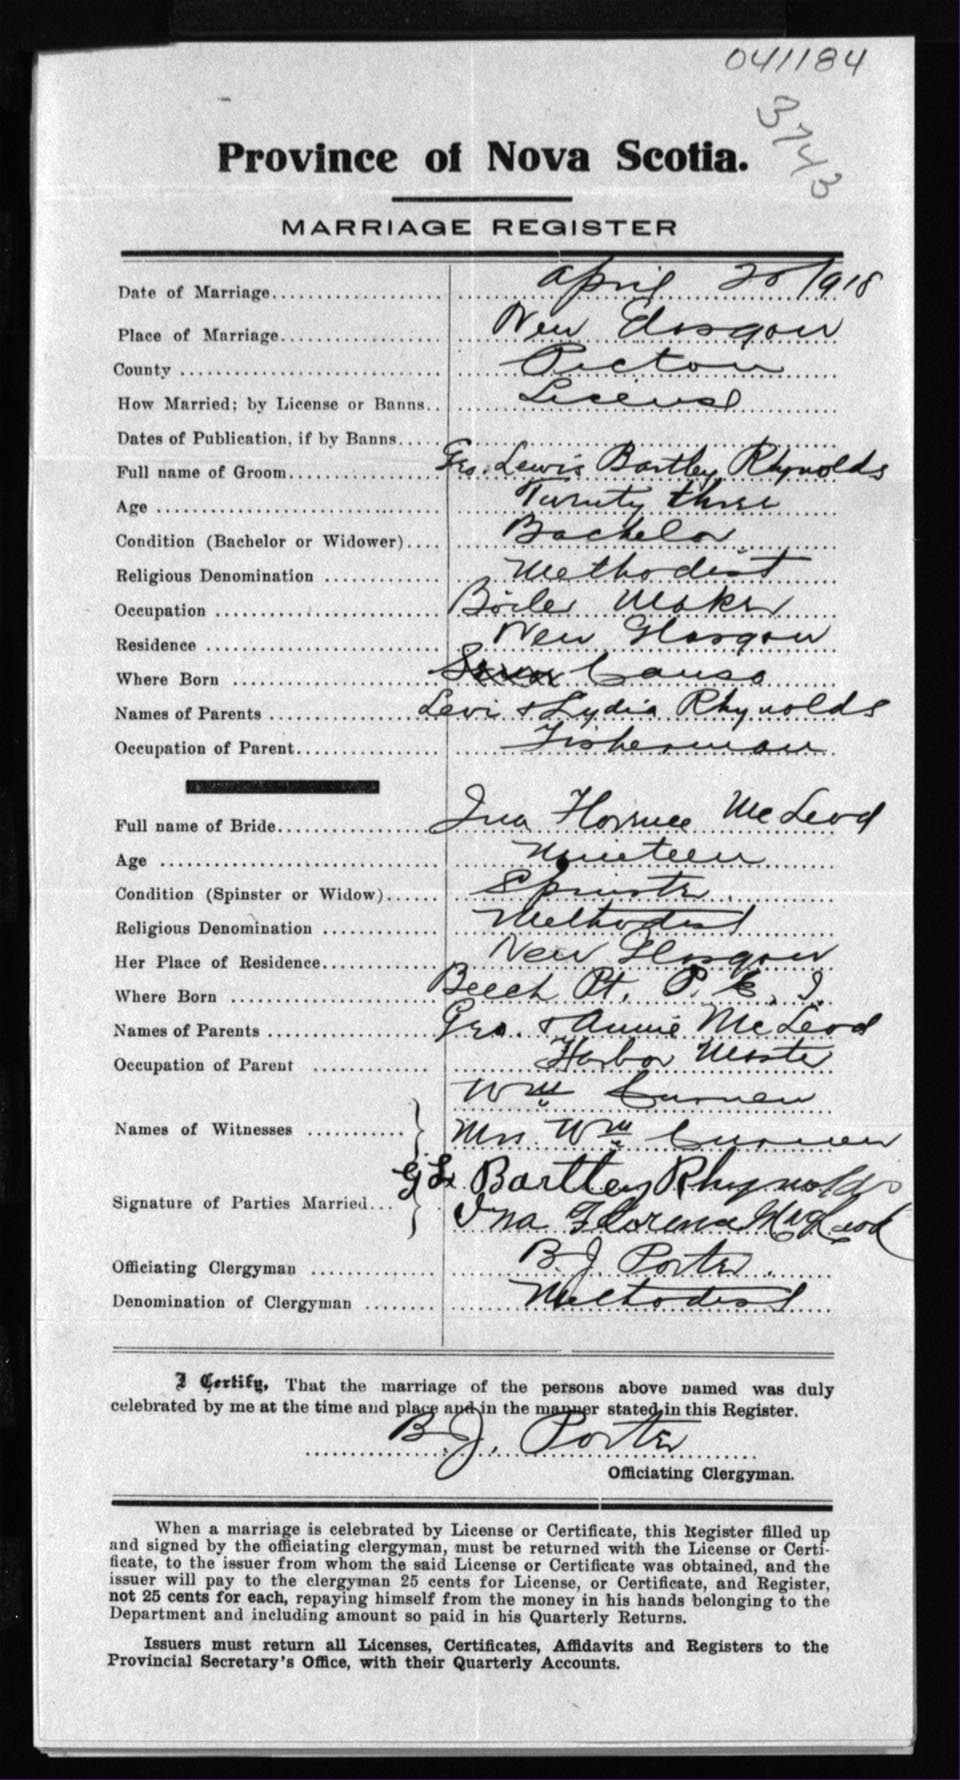 041184
3743
Province of Nova Scotia.
MARRIAGE REGISTER
Date of Marriage.................... April 20 1918
Place of Marriage................... New Glasgow
County .............................. Pictou
How Married; by License or Banns.. License
Dates of Publication, if by Banns.....
Full name of Groom................. Geo. Lewis Bartley Rhynolds
Age ................................. Twenty three
Condition (Bachelor or Widower).... Bachelor
Religious Denomination ............. Methodist
Occupation .......................... Boiler Maker
Residence ........................... New Glasgow
Where Born ......................... Canso
Names of Parents ................... Levi & Lydia Rhynolds
Occupation of Parent................ Fisherman
Full name of Bride................... Ina Florence McLeod
Age ................................. Nineteen
Condition (Spinster or Widow)...... Spinster.
Religious Denomination ............. Methodist
Her Place of Residence.............. New Glasgow
Where Born ......................... Beech Pt. P. E. I.
Names of Parents ................... Geo. & Annie McLeod
Occupation of Parent ............... Harbor Master
Wm
Names of Witnesses ........... Mrs. Wm
G L Bartley Rhynolds
Signature of Parties Married... Ina Florence McLeod
Officiating Clergyman ............... B. J. Porter.
Denomination of Clergyman ........ Methodist
I Certify, That the marriage of the persons above named was duly
celebrated by me at the time and place and in the manner stated in this Register.
B. J. Porter
Officiating Clergyman.
When a marriage is celebrated by License or Certificate, this Register filled up
and signed by the officiating clergyman, must be returned with the License or Certi-
ficate, to the issuer from whom the said License or Certificate was obtained, and the
issuer will pay to the clergyman 25 cents for License, or Certificate, and Register,
not 25 cents for each, repaying himself from the money in his hands belonging to the
Department and including amount so paid in his Quarterly Returns.
Issuers must return all Licenses, Certificates, Affidavits and Registers to the
Provincial Secretary's Office, with their Quarterly Accounts.